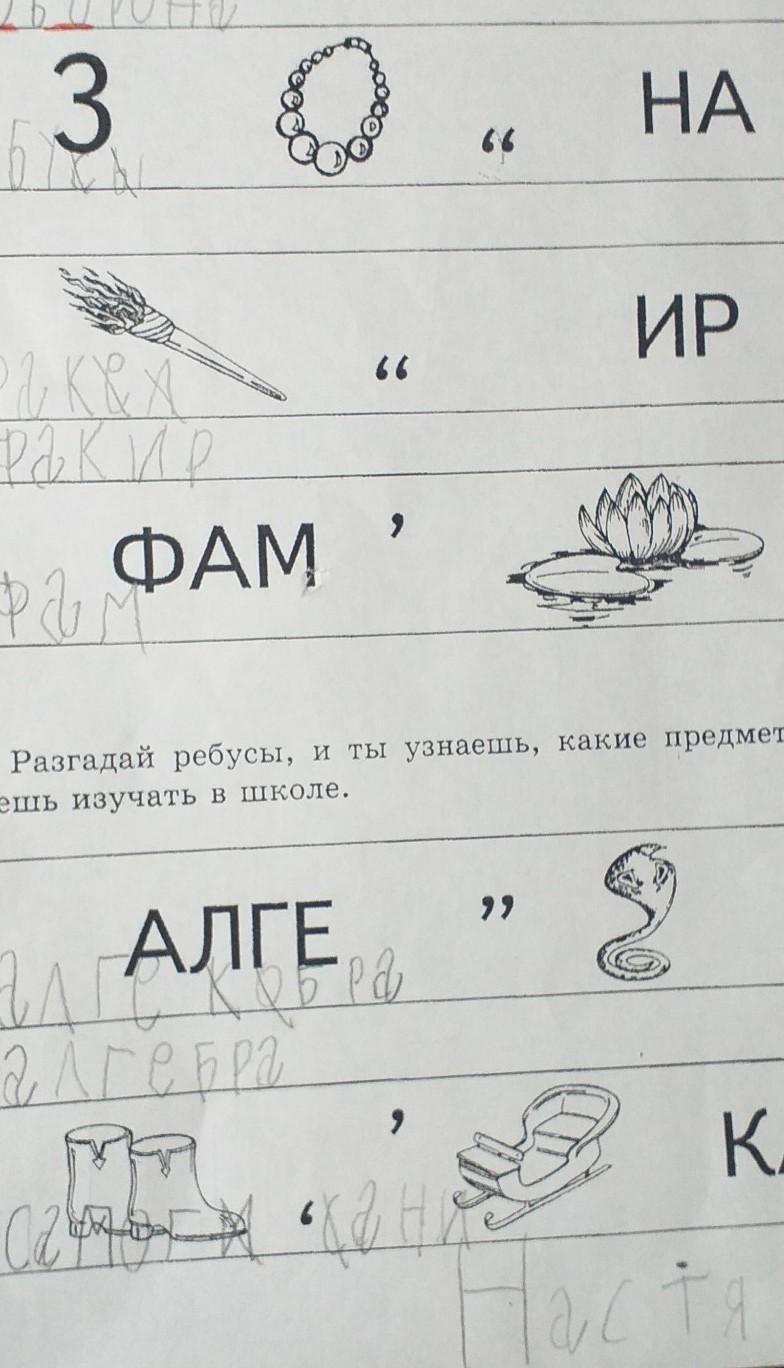 З “ НА
бусы
“ ИР
факел
факир
ФАМ ’
фам
Разгадай ребусы, и ты узнаешь, какие предмет
ешь изучать в школе.
АЛГЕ ”
алге кобра
алгебра
’ КА
сапоги ‘ сани
Настя